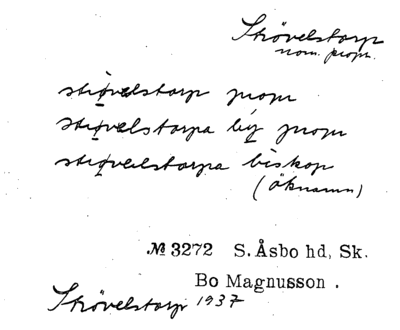 Strövelstorp
nom. propr.
strøvelstorp propr
strøvelstorpa by propr
strøvelstorpa biskop
(öknamn)
№ 3272 S. Åsbo hd, Sk.
Bo Magnusson.
Strövelstorp 1937